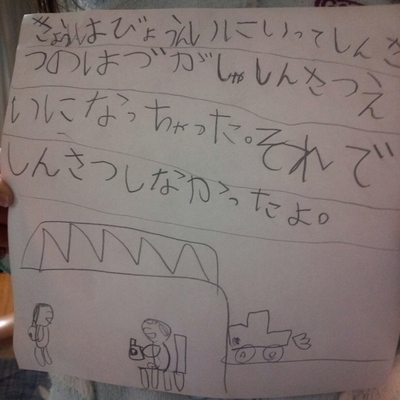 きょうはびょうんいにいってしんさ
つのはづがしゃしんさつえ
いになっちゃった。それで
しんさつしなかったよ。